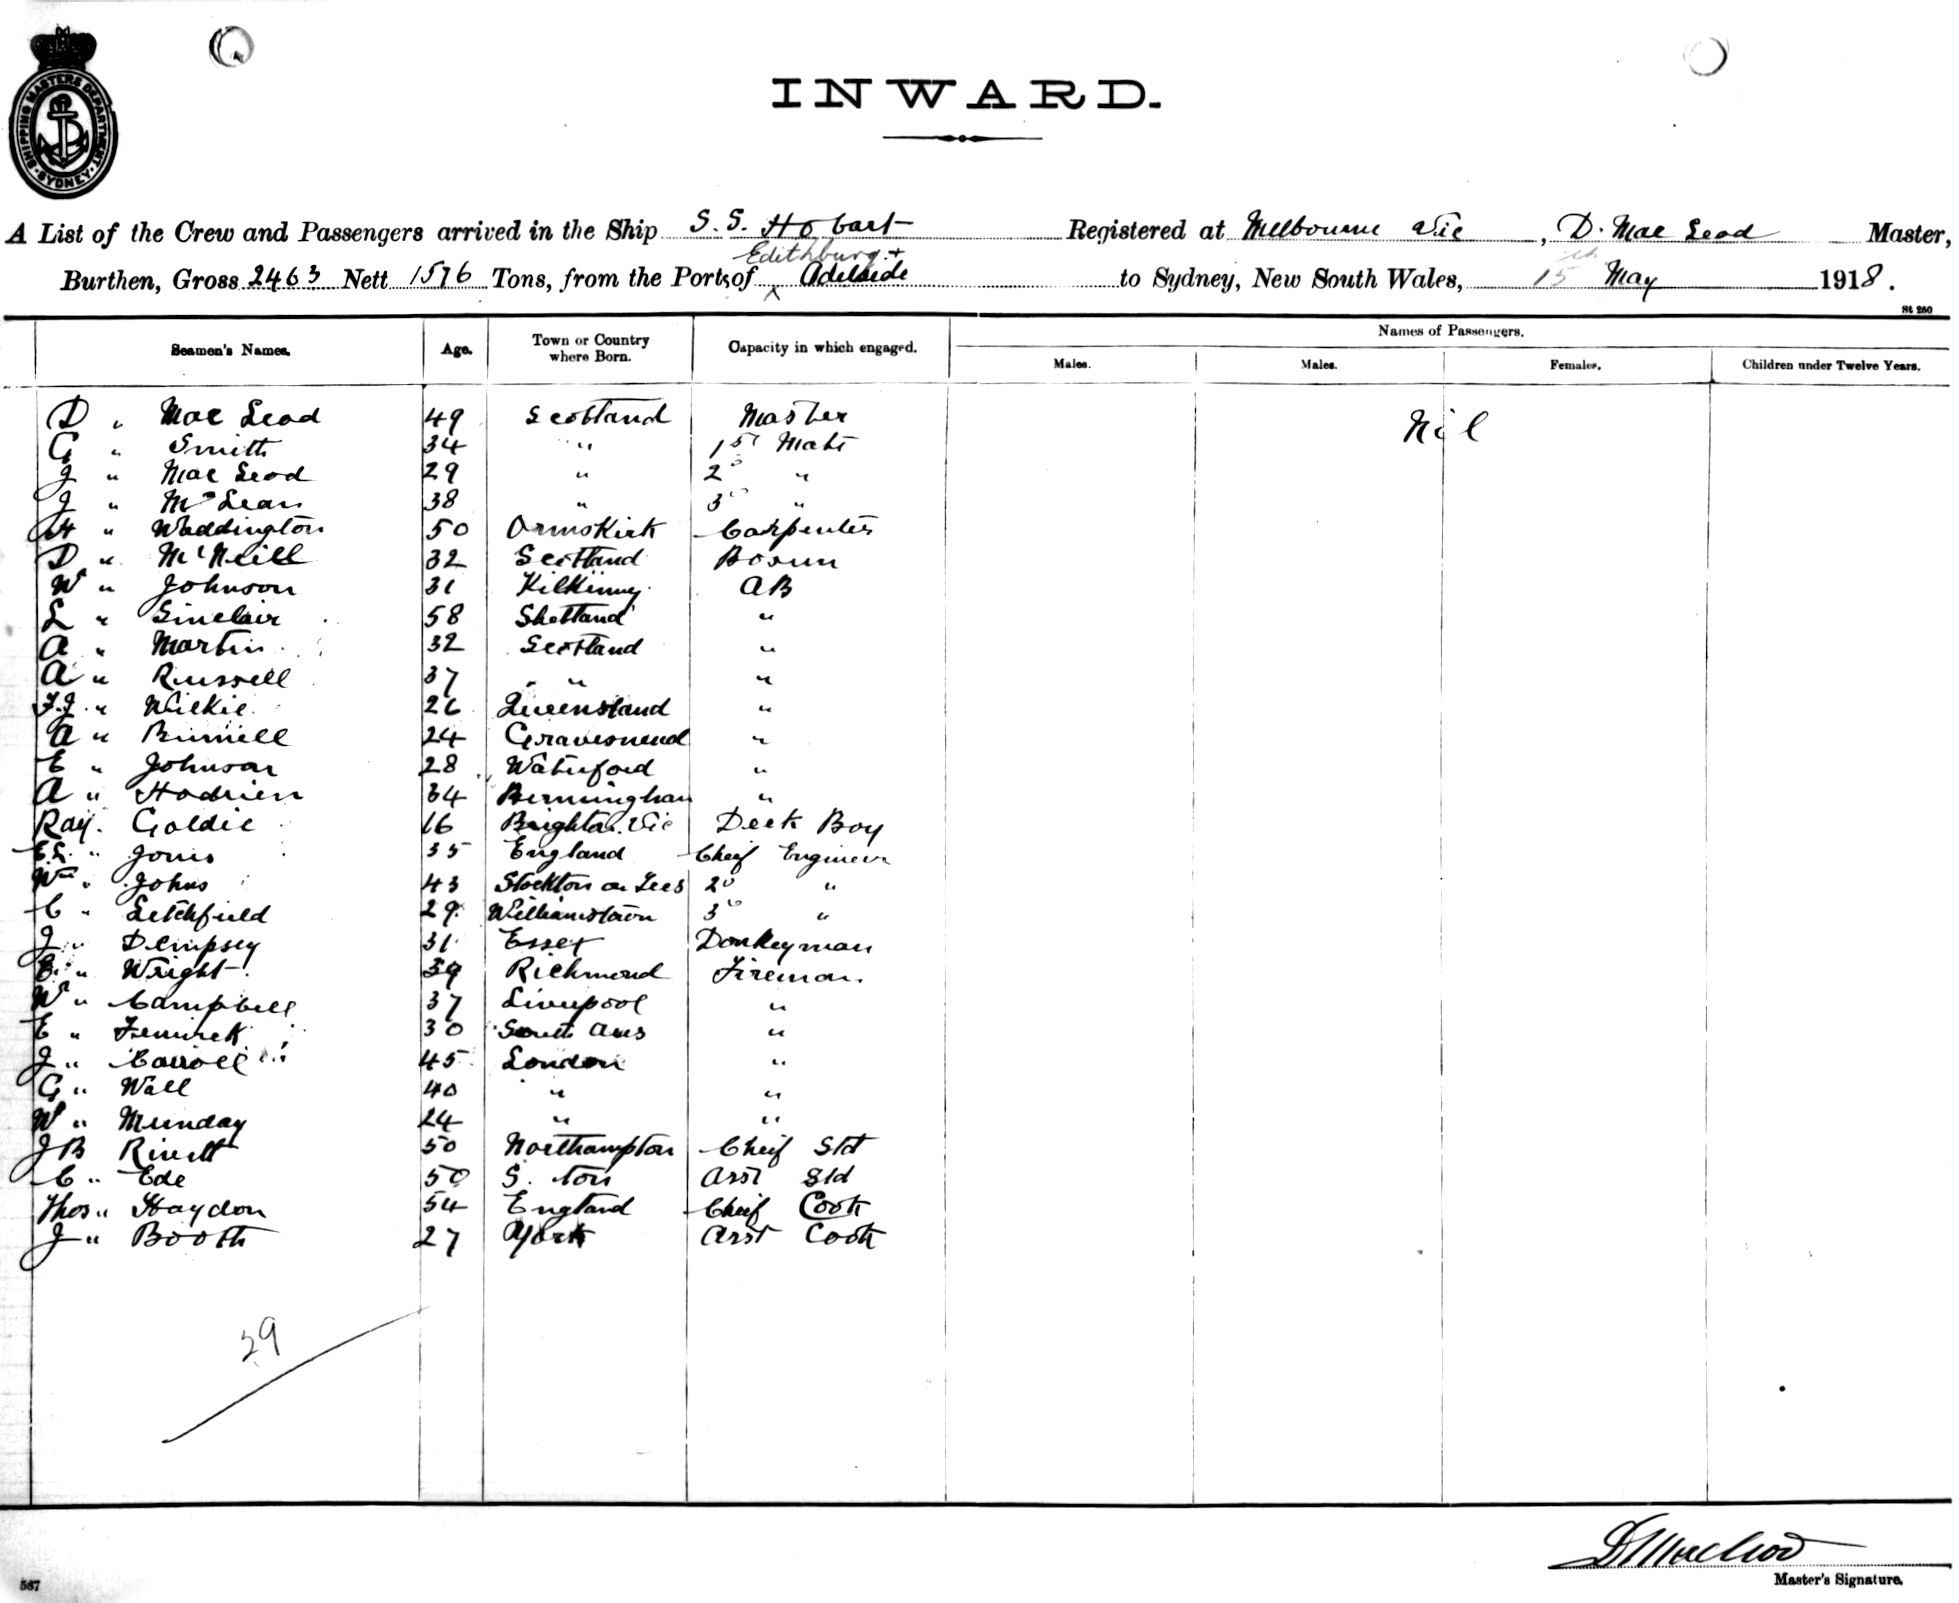 SHIPPING MASTERS DEPARTMENT
SYDNEY
INWARD.
A List of the Crew and Passengers arrived in the Ship S.S. Hobart Registered at Melbourne Vic, D. Mac Leod Master,
Edithburg +
Burthen, Gross 2463 Nett 1576 Tons, from the Ports of Adelaide to Sydney, New South Wales, 15th May 1918.
St 250
Seamen's Names. Age. Town or Country where Born. Capacity in which engaged. Names of Passengers.
Males. Males. Females. Children under Twelve Years.
D " Mac Leod 49 Scotland Master Nil
G " Smith 34 " 1st Mate
J " Mac Leod 29 " 2d "
J " McLean 38 " 3d "
H " Waddington 50 Ormskirk Carpenter
D " McNeill 32 Scotland Bosun
W " Johnson 31 Kilkinny AB
L " Sinclair 58 Shetland "
A " Martin 32 Scotland "
A " Russell 37 " "
F.J. " Wilkie 26 Queensland "
A " 24 Gravesend "
E " Johnson 28 Waterford "
A " Hadrien 34 Birmingham "
Ray. Goldie 16 Brighton. Vic Deck Boy
" Jones 35 England Cheif Engineer
Wm " Johns 43 Stockton on Tees 2d "
C " Letchfield 29 Williamstown 3d "
J " Dempsey 31 Essex Donkeyman
E " Wright 39 Richmond Fireman
W " Campbell 37 Liverpool "
E " Fenwick 30 South Aus "
J " Carroll 45 London "
G " Wall 40 " "
W " Munday 24 " "
J B Rivett 50 Northampton Cheif Std
C " Ede 50 S. ton Asst Std
Thos " Haydon 54 England Cheif Cook
J " Booth 27 York Asst Cook
29
D MacLeod
Master's Signature.
587